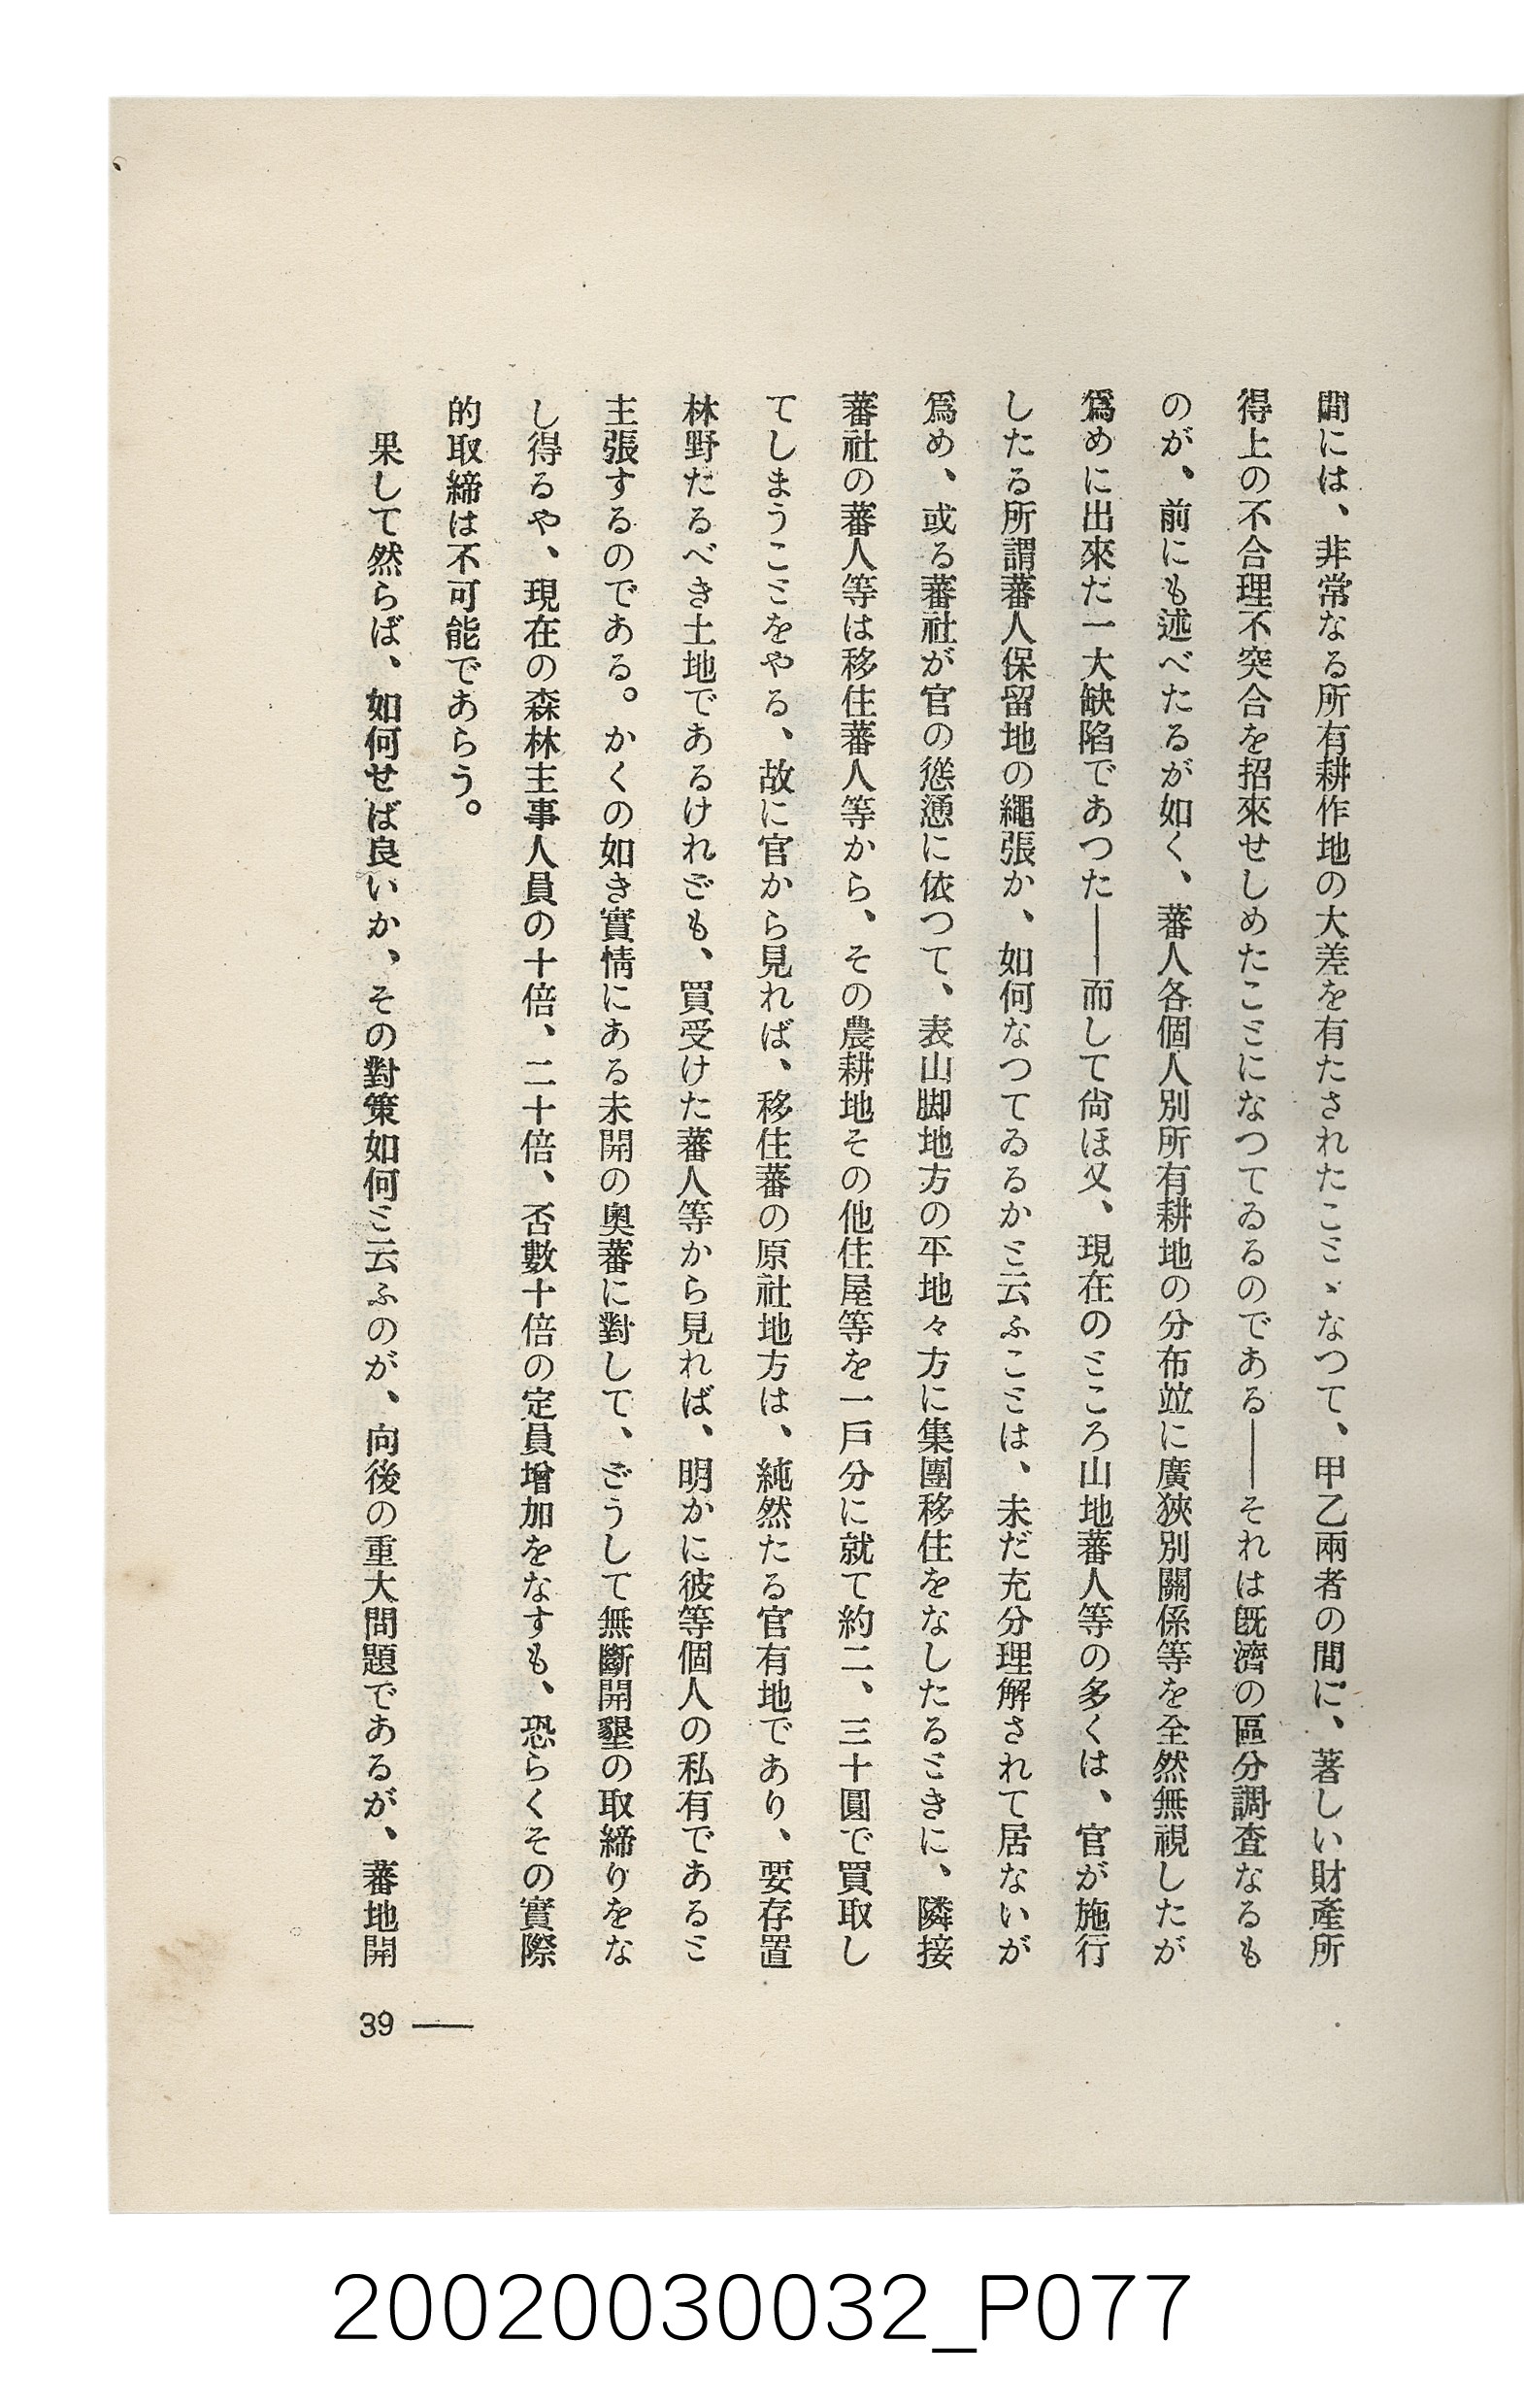 間には、非常なる所有耕作地の大差を有たされたことゝなつて、甲乙兩者の間に、著しい財產所
得上の不合理不突合を招來せしめたことになつてゐるのである――それは既濟の區分調査なるも
のが、前にも述べたるが如く、蕃人各個人別所有耕地の分布竝に廣狹別關係等を全然無視したが
爲めに出來た一大缺陷であつた――而して尙ほ又、現在のところ山地蕃人等の多くは、官が施行
したる所謂蕃人保留地の繩張か、如何なつてゐるかと云ふことは、未だ充分理解されて居ないが
爲め、或る蕃社が官の慫慂に依つて、表山脚地方の平地々方に集團移住をなしたるときに、隣接
蕃社の蕃人等は移住蕃人等から、その農耕地その他住屋等を一戶分に就て約二、三十圓で買取し
てしまうことをやる、故に官から見れば、移住蕃の原社地方は、純然たる官有地であり、要存置
林野たるべき土地であるけれども、買受けた蕃人等から見れば、明かに彼等個人の私有であると
主張するのである。かくの如き實情にある未開の奧蕃に對して、どうして無斷開墾の取締りをな
し得るや、現在の森林主事人員の十倍、二十倍、否數十倍の定員增加をなすも、恐らくその實際
的取締は不可能であらう。
果して然らば、如何せば良いか、その對策如何と云ふのが、向後の重大問題であるが、蕃地開
39 ―
20020030032_P077